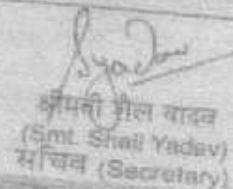 Syadav
श्रीमती शैल यादव
(Smt. Shail Yadav)
सचिव (Secretary)